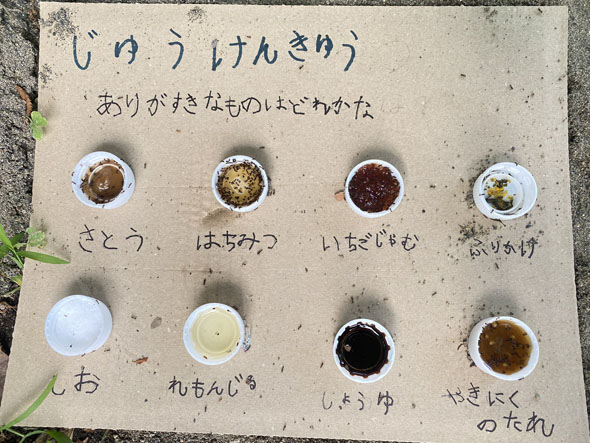 じゆうけんきゅう
ありがすきなものはどれかな
さとう はちみつ いちごじゃむ ふりかけ
しお れもんじる しょうゆ やきにく
のたれ